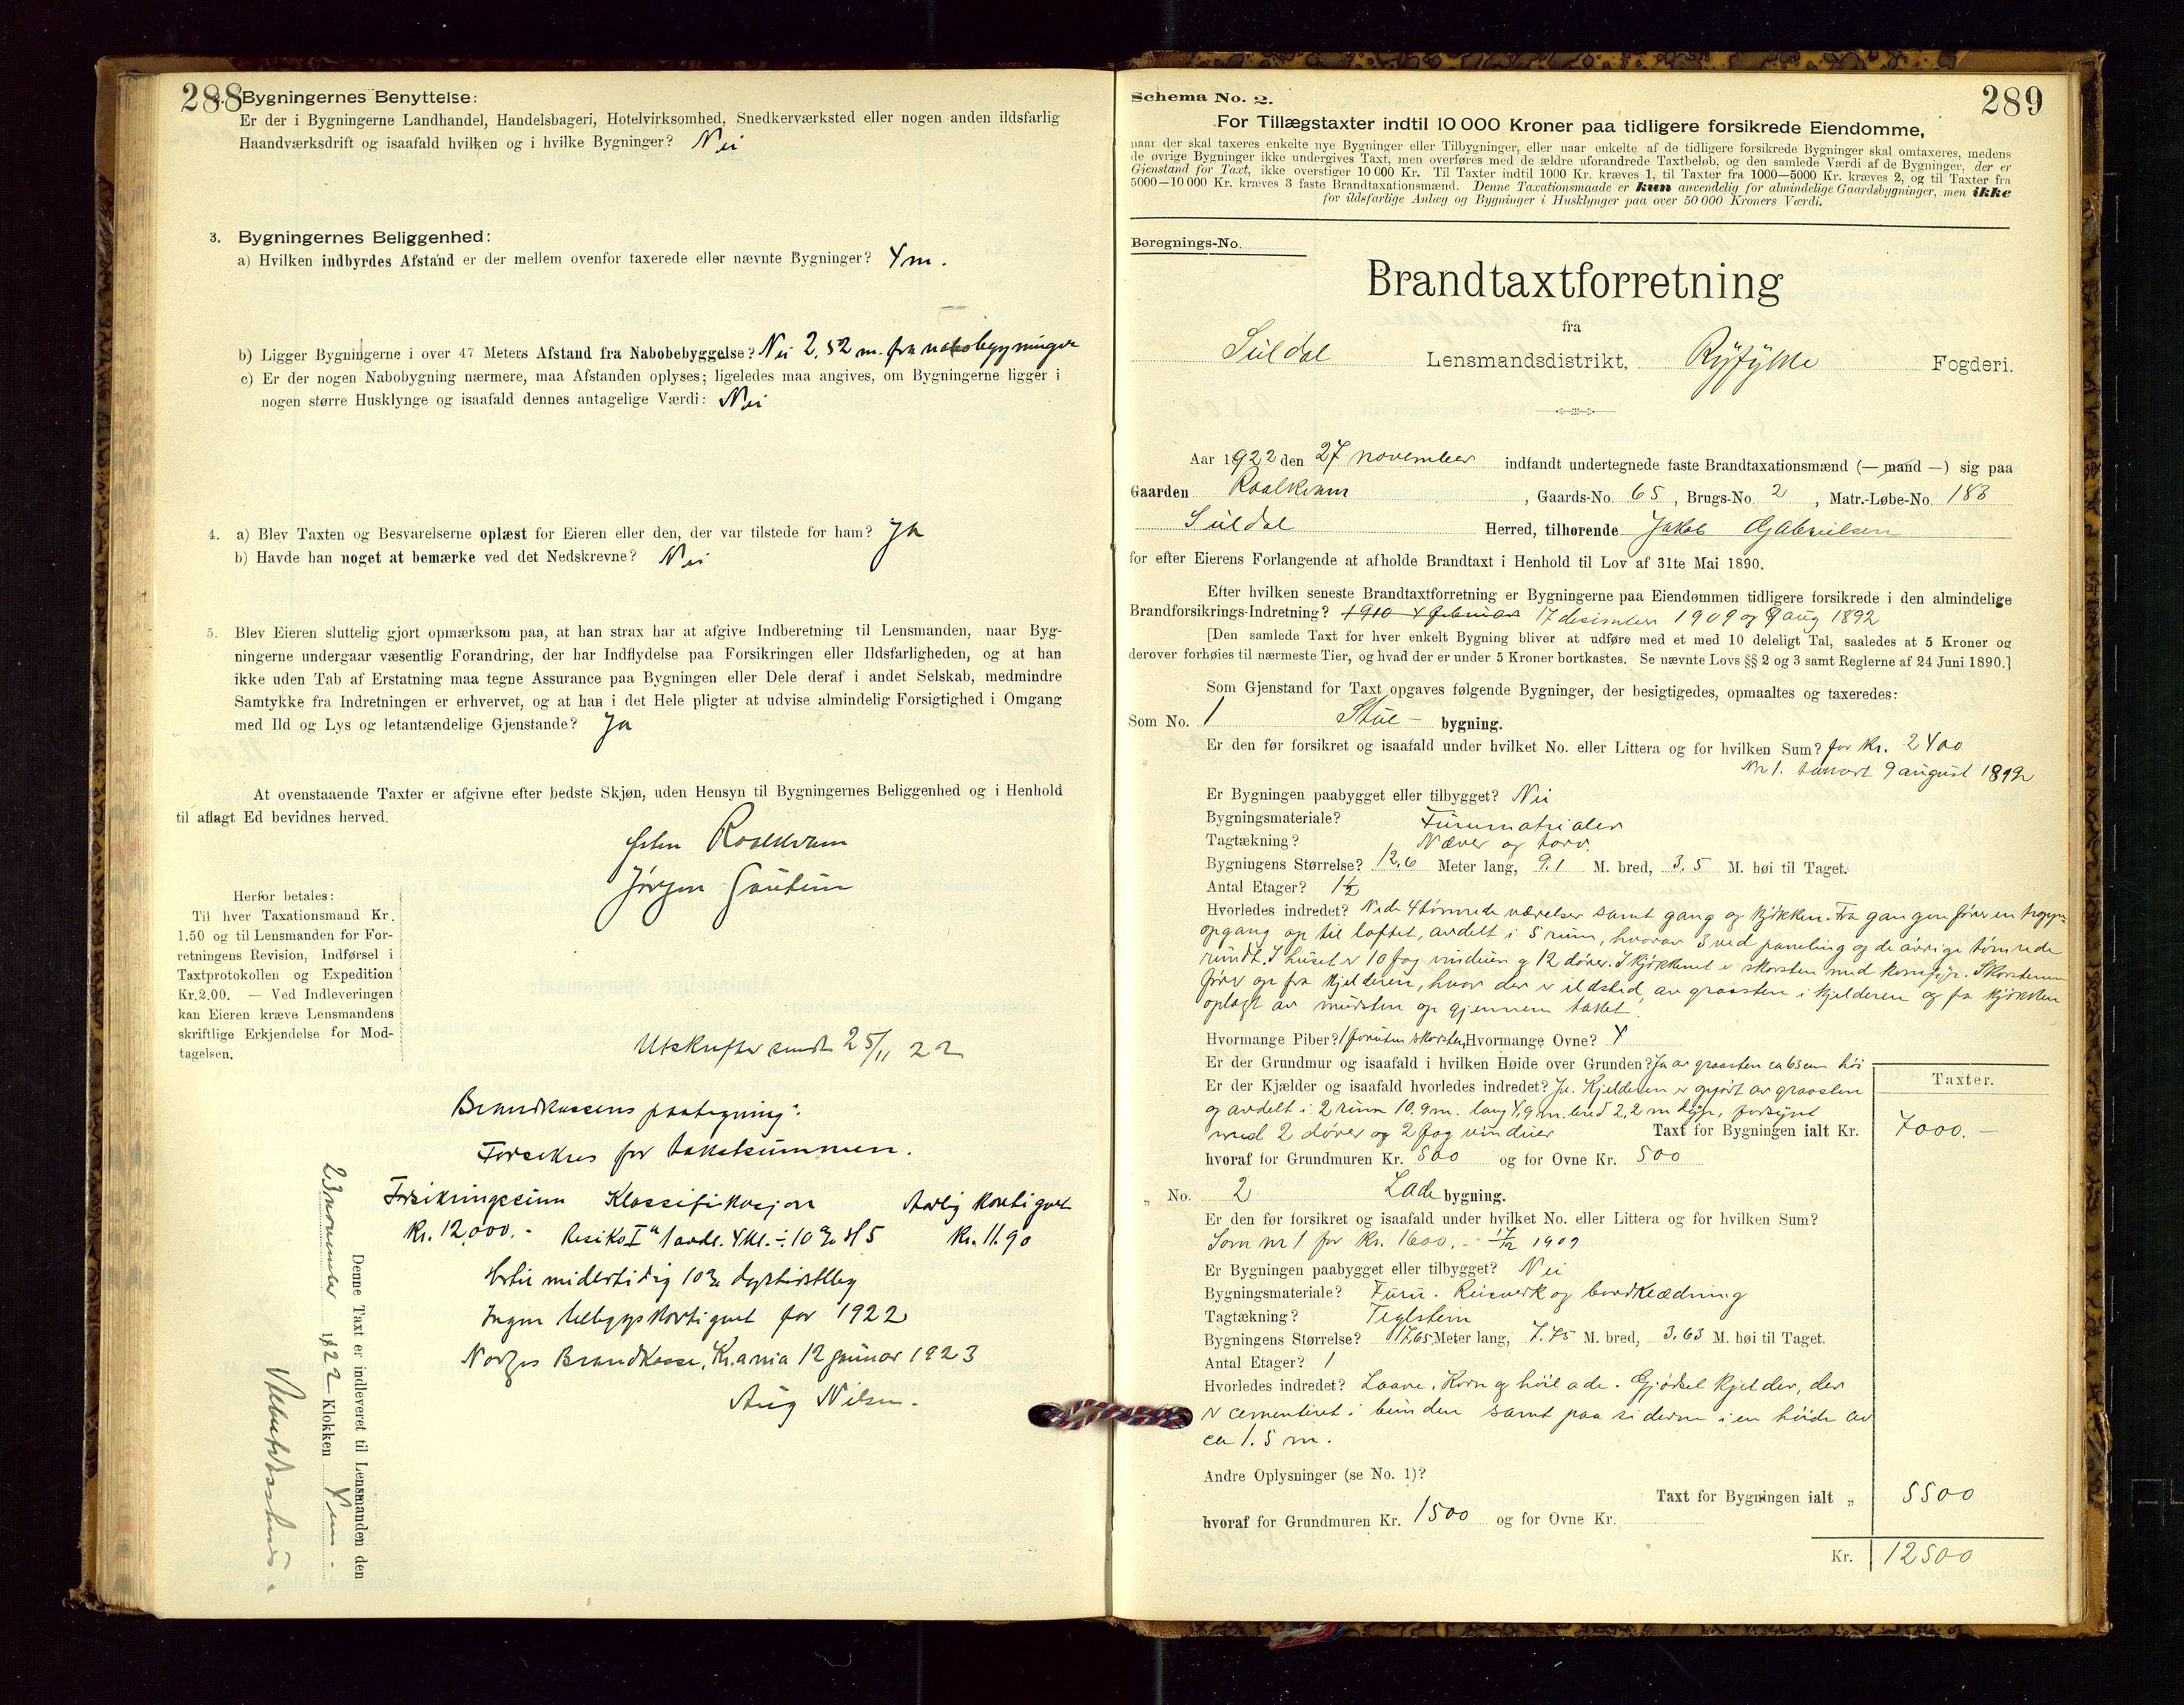 288
2. Bygningernes Benyttelse:
Er der i Bygningerne Landhandel, Handelsbageri, Hotelvirksomhed, Snedkerværksted eller nogen anden ildsfarlig
Haandværksdrift og isaafald hvilken og i hvilke Bygninger? Nei
3. Bygningernes Beliggenhed:
a) Hvilken indbyrdes Afstand er der mellem ovenfor taxerede eller nævnte Bygninger? 4 m.
b) Ligger Bygningerne i over 47 Meters Afstand fra Nabobebyggelse? Nei 2,52 m. fra nabobygninger
c) Er der nogen Nabobygning nærmere, maa Afstanden oplyses; ligeledes maa angives, om Bygningerne ligger i
nogen større Husklynge og isaafald dennes antagelige Værdi: Nei
4. a) Blev Taxten og Besvarelserne oplæst for Eieren eller den, der var tilstede for ham? Ja
b) Havde han noget at bemærke ved det Nedskrevne? Nei
5. Blev Eieren sluttelig gjort opmærksom paa, at han strax har at afgive Indberetning til Lensmanden, naar Byg-
ningerne undergaar væsentlig Forandring, der har Indflydelse paa Forsikringen eller Ildsfarligheden, og at han
ikke uden Tab af Erstatning maa tegne Assurance paa Bygningen eller Dele deraf i andet Selskab, medmindre
Samtykke fra Indretningen er erhvervet, og at han i det Hele pligter at udvise almindelig Forsigtighed i Omgang
med Ild og Lys og letantændelige Gjenstande? Ja
At ovenstaaende Taxter er afgivne efter bedste Skjøn, uden Hensyn til Bygningernes Beliggenhed og i Henhold
til aflagt Ed bevidnes herved.
Roalkvam
Jørgen
Herfor betales:
Til hver Taxationsmand Kr.
1.50 og til Lensmanden for For-
retningens Revision, Indførsel i
Taxtprotokollen og Expedition
Kr.2.00. — Ved Indleveringen
kan Eieren kræve Lensmandens
skriftlige Erkjendelse for Mod-
tagelsen.
Utskrifter sendt 25/11 22
Brandkassens paategning:
Forsikres for takstsummen.
Forsikringssum Klassifikasjon Aarlig kontigent
Kr. 12,000.- Resiko I a 1 avdl. 4 kl. ÷ 10 % Kr. 11.90
Hertil midlertidig 10% dyrtidstillæg
Ingen tilbygskontigent for 1922
Norges Brandkasse, Kr.ania 12 januar 1923
Aug Nilsen.
Denne Taxt er indleveret til Lensmanden den
23 november 1922 Klokken 4 em.
289
Schema No. 2.
For Tillægstaxter indtil 10 000 Kroner paa tidligere forsikrede Eiendomme,
naar der skal taxeres enkelte nye Bygninger eller Tilbygninger, eller naar enkelte af de tidligere forsikrede Bygninger skal omtaxeres, medens
de øvrige Bygninger ikke undergives Taxt, men overføres med de ældre uforandrede Taxtbeløb, og den samlede Værdi af de Bygninger, der er
Gjenstand for Taxt, ikke overstiger 10 000 Kr. Til Taxter indtil 1000 Kr. kræves 1, til Taxter fra 1000—5000 Kr. kræves 2, og til Taxter fra
5000—10 000 Kr. kræves 3 faste Brandtaxationsmænd. Denne Taxationsmaade er kun anvendelig for almindelige Gaardsbygninger, men ikke
for ildsfarlige Anlæg og Bygninger i Husklynger paa over 50 000 Kroners Værdi.
Beregnings-No.
Brandtaxtforretning
fra
Suldal Lensmandsdistrikt, Ryfylke Fogderi.
Aar 1922 den 27 november indfandt undertegnede faste Brandtaxationsmænd (— mand —) sig paa
Gaarden Roalkvam, Gaards-No. 65, Brugs-No. 2, Matr.-Løbe-No. 183
Suldal Herred, tilhørende Jakob Gabrielsen
for efter Eierens Forlangende at afholde Brandtaxt i Henhold til Lov af 31te Mai 1890.
Efter hvilken seneste Brandtaxtforretning er Bygningerne paa Eiendommen tidligere forsikrede i den almindelige
Brandforsikrings-Indretning? 1910 4 februar 17 desimber 1909 og 9 aug 1892
[Den samlede Taxt for hver enkelt Bygning bliver at udføre med et med 10 deleligt Tal, saaledes at 5 Kroner og
derover forhøies til nærmeste Tier, og hvad der er under 5 Kroner bortkastes. Se nævnte Lovs §§ 2 og 3 samt Reglerne af 24 Juni 1890.]
Som Gjenstand for Taxt opgaves følgende Bygninger, der besigtigedes, opmaaltes og taxeredes:
Som No. 1 Stue- bygning.
Er den før forsikret og isaafald under hvilket No. eller Littera og for hvilken Sum? for kr. 2400
Nr 1. takseret 9 august 1892
Er Bygningen paabygget eller tilbygget? Nei
Bygningsmateriale? Furumatrialer
Tagtækning? Næver og torv.
Bygningens Størrelse? 12,6 Meter lang, 9.1 M. bred, 3.5 M. høi til Taget.
Antal Etager? 1½
Hvorledes indredet? Nede 4 tømrede værelser samt gang og kjøkken. Fra gangen fører en
opgang op til loftet, avdelt i 5 rum, hvorav 3 ved paneling og de øvrige tømrede
rundt. I huset er 10 fag vinduer og 12 dører. I kjøkkenet er skorsten med komfyr. Skorstenen
fører op fra kjelderen, hvor der er ildsted, av graasten i kjelderen og fra kjøkken
oplagt av mursten op gjennem taket.
Hvormange Piber? 1 foruten skorsten, Hvormange Ovne? 4
Er der Grundmur og isaafald i hvilken Høide over Grunden? Ja av graasten ca 63 cm høi
Er der Kjælder og isaafald hvorledes indredet? Ja. Kjelderen er opført av graasten
og avdelt i 2 rum 10,9 m. lang 4,9 m. bred 2,2 m dyp, forsynt
med 2 dører og 2 fag vinduer Taxt for Bygningen ialt Kr.
Taxter.
7000.-
hvoraf for Grundmuren Kr. 500 og for Ovne Kr. 500
„ No. 2 Lade bygning.
Er den før forsikret og isaafald under hvilket No. eller Littera og for hvilken Sum?
Som nr 1 for kr. 1600.- 17/12 1909
Er Bygningen paabygget eller tilbygget? Nei
Bygningsmateriale? Furu. Reisverk og bordklædning
Tagtækning? Teglstein
Bygningens Størrelse? 17,65 Meter lang, 7.75 M. bred, 3.63 M. høi til Taget.
Antal Etager? 1
Hvorledes indredet? Laave. Korn og høilade. Gjødselkjelder, der
er cementeret i bunden samt paa siderne i en høide av
ca 1.5 m.
Andre Oplysninger (se No. 1)?
Taxt for Bygningen ialt „ 5500
hvoraf for Grundmuren Kr. 1500 og for Ovne Kr.
Kr. 12500